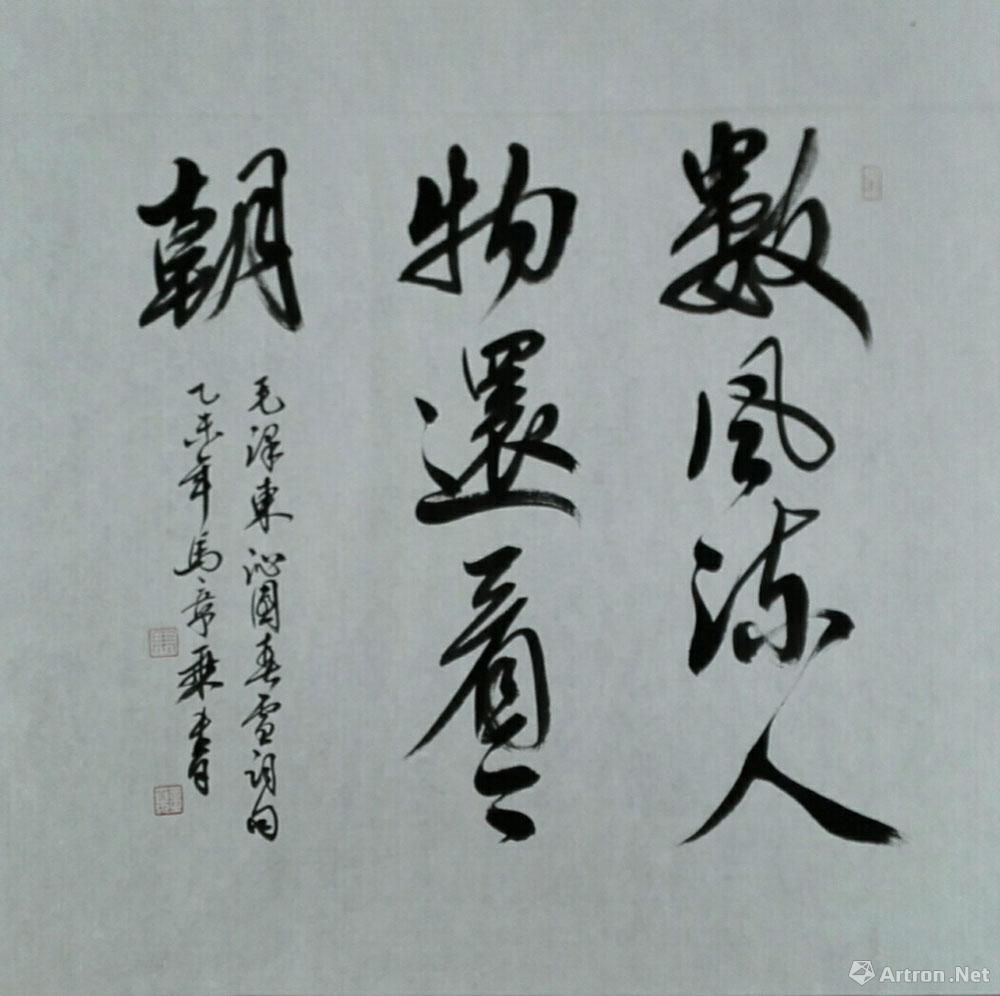 數風流人
物還看今
朝
毛澤東沁園春雪詞句
乙未年馬彥乘書
Artron.Net